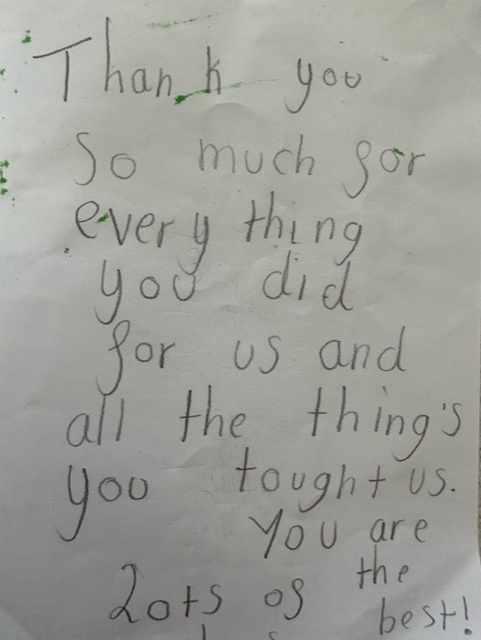 Thank you
So much for
every thing
you did
for us and
all the thing's
you tought us.
You are
the
best!
Lots of